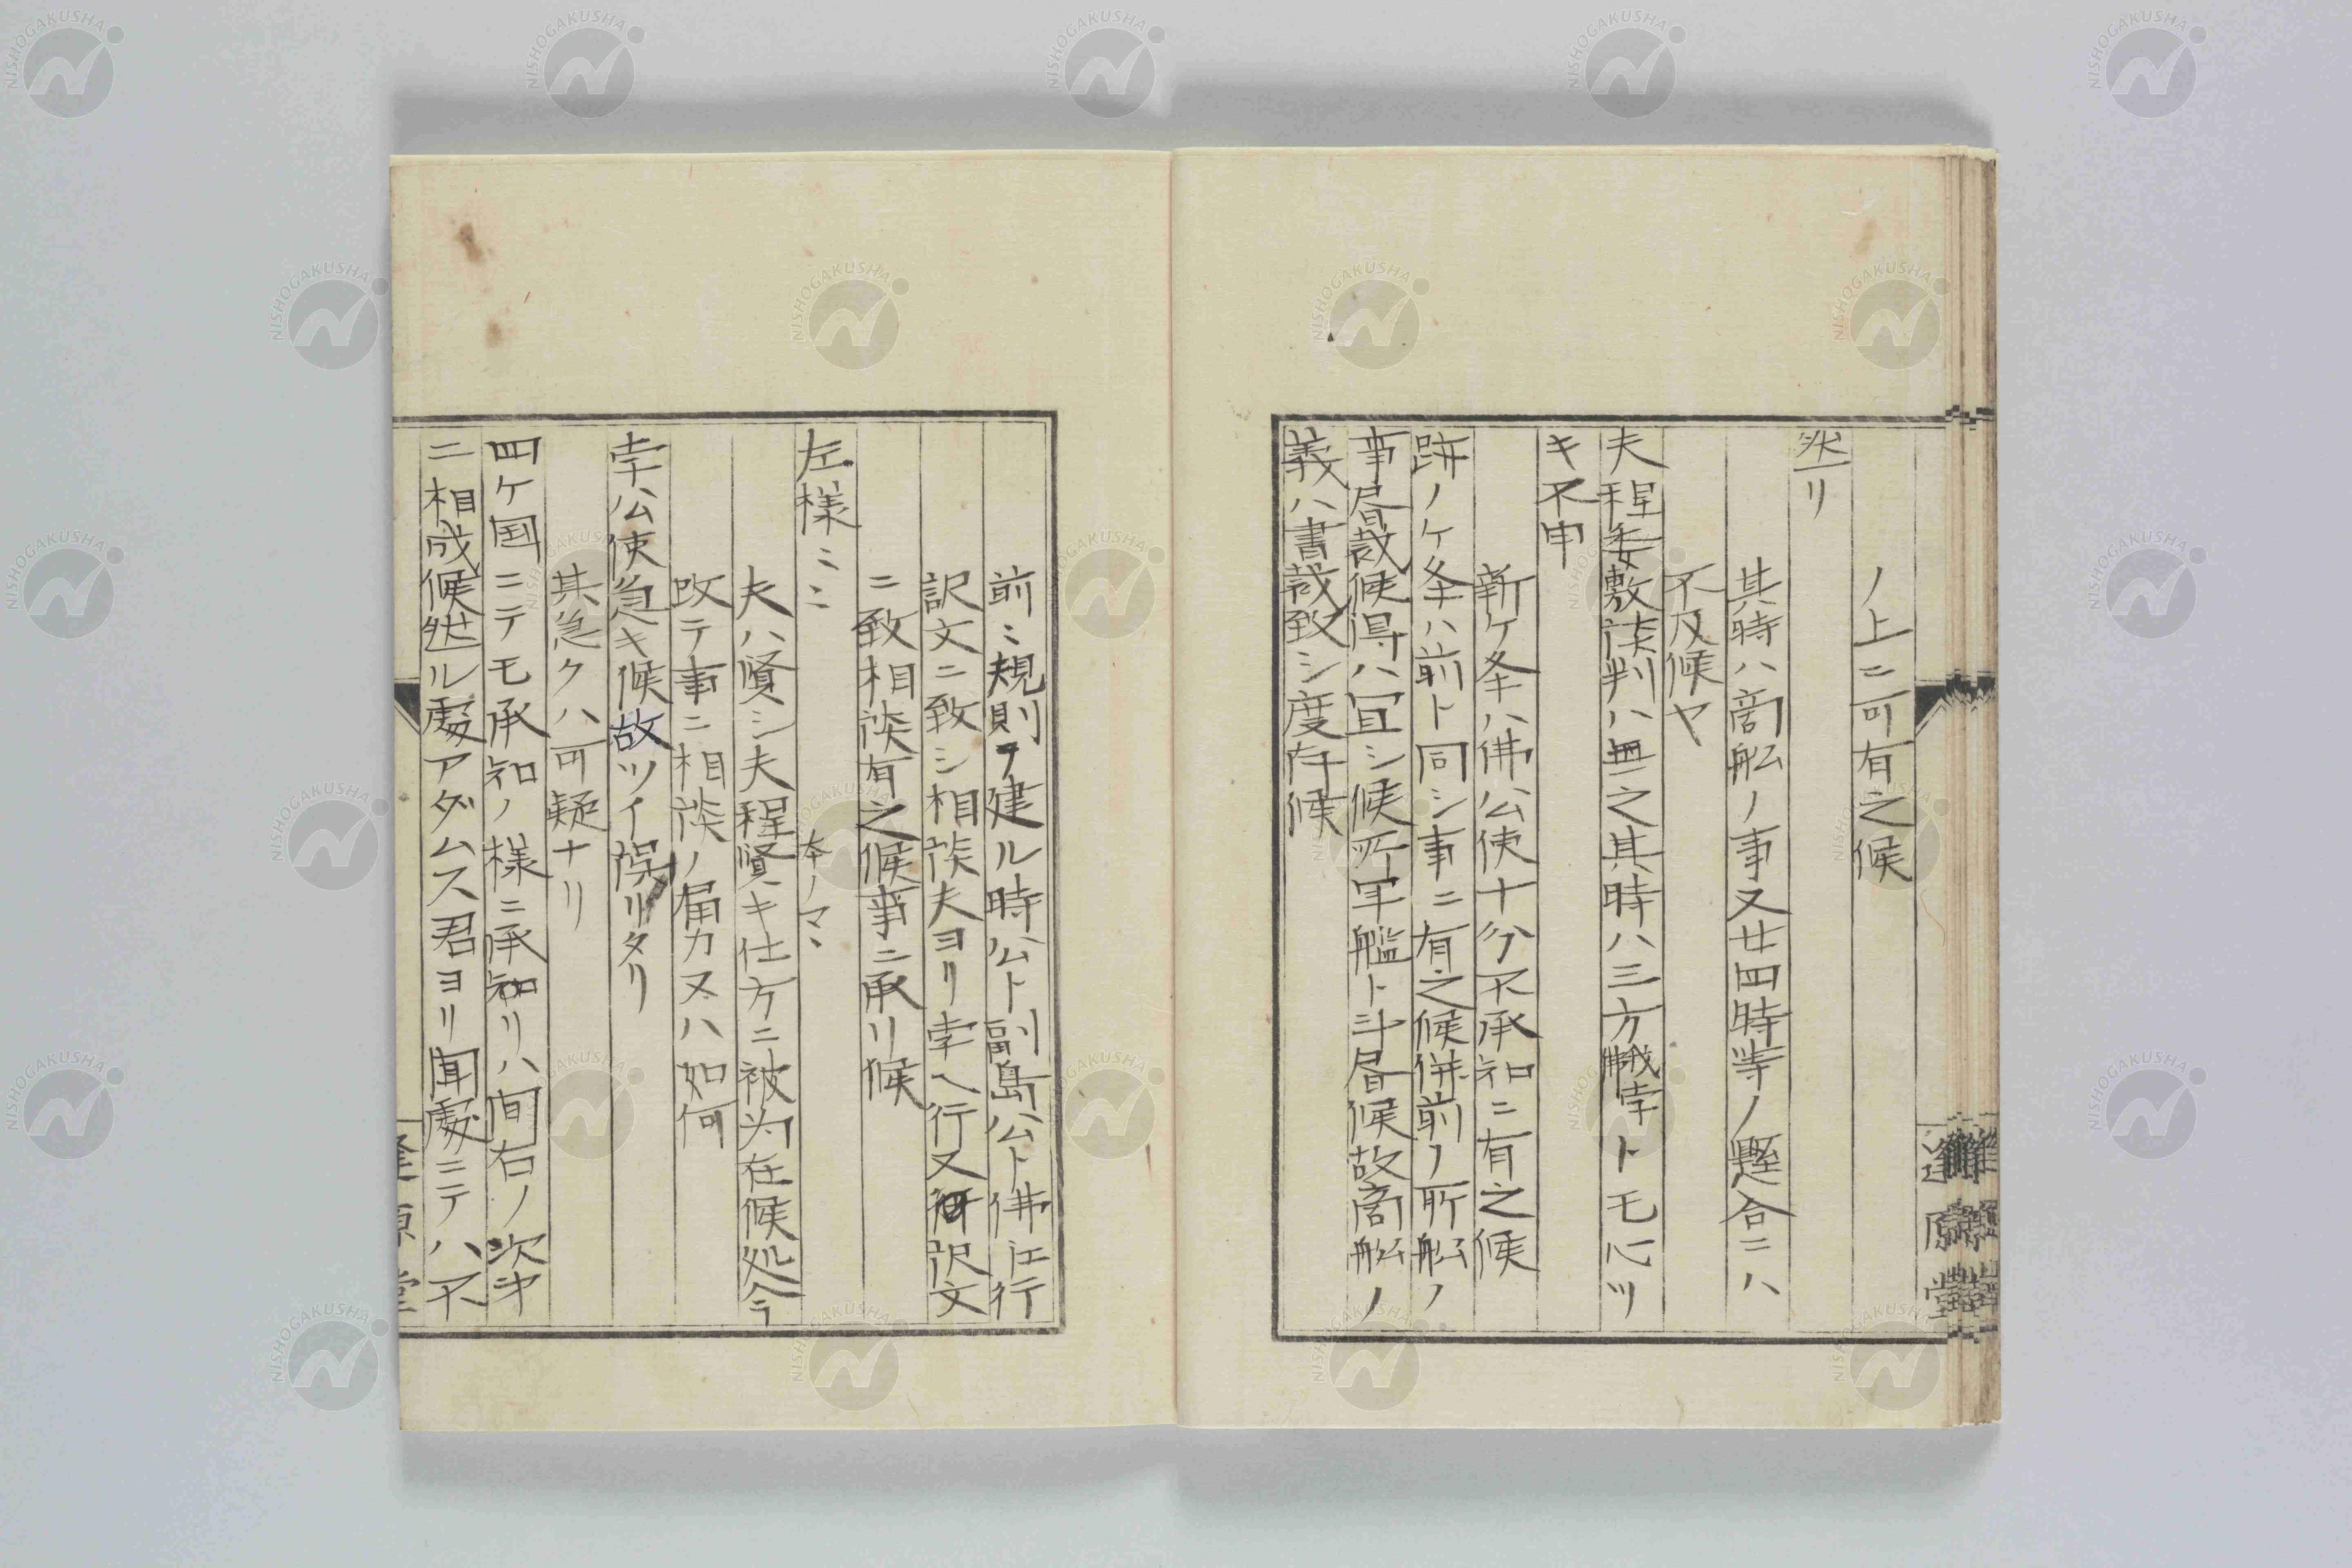 ノ上ニ可有之候
然リ
其時ハ商船ノ事又廿四時等ノ懸合ニハ
不及候ヤ
夫程委敷談判ハ無之其時ハ三方佛孛トモ心ツ
キ不申
新ケ条ハ佛公使十分不承知ニ有之候
跡ノケ条ハ前ト同シ事ニ有之候併前ノ所船ノ
事昼裁候得ハ宜シ候所軍艦ト斗昼候故商船ノ
義ハ書裁致シ度存候
前ニ規則ヲ建ル時公ト副島公ト佛江行
訳文ニ致シ相談夫ヨリ孛ヘ行又訳文
ニ致相談有之候事ニ承リ候
左様ニニ
本ノマヽ
夫ハ賢シ夫程賢キ仕方ニ被为在候処今
改テ事ニ相談ノ届カヌハ如何
孛公使急キ候故ツイ誤リタリ
其急クハ可疑ナリ
四ケ国ニテモ承知ノ様ニ承知リハ間右ノ次第
ニ相成候然ル處アダムス君ヨリ聞處ニテハ不
逢原堂